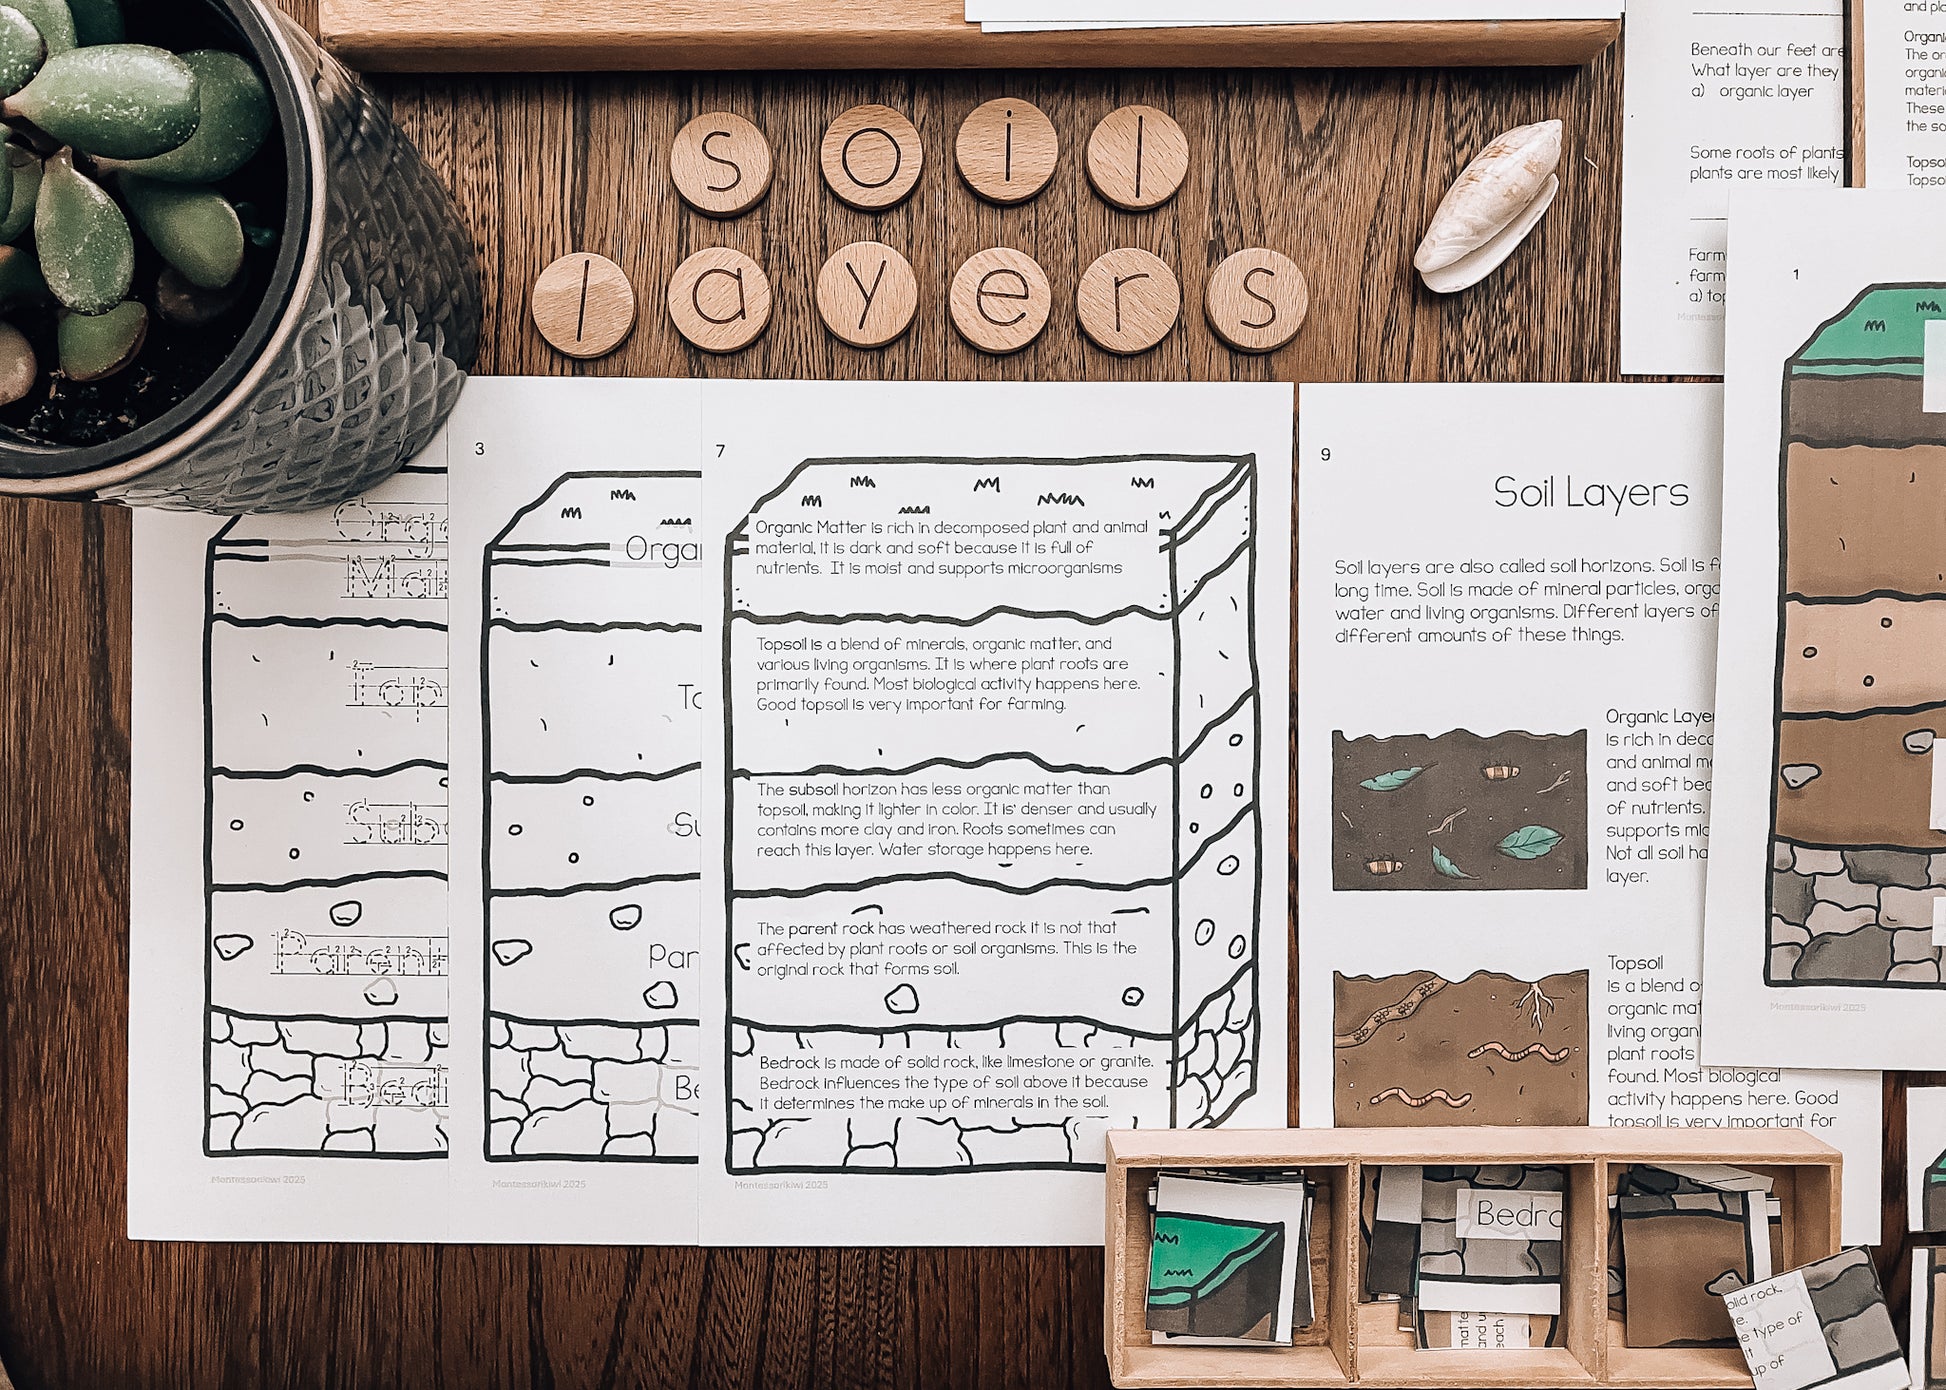 soil
layers
Beneath our feet are
What layer are they
a) organic layer
Some roots of plants
plants are most likely
Farm
farm
a) top
and pl
Organi
The or
organi
materi
These
the so
Topso
Topso
1
Montessorikiwi 2025
Orga
Mat
Top
Sub
Parent
Bed
Montessorikiwi 2025
3
Organ
To
Su
Par
Be
Montessorikiwi 2025
7
Organic Matter is rich in decomposed plant and animal
material, it is dark and soft because it is full of
nutrients. It is moist and supports microorganisms
Topsoil is a blend of minerals, organic matter, and
various living organisms. It is where plant roots are
primarily found. Most biological activity happens here.
Good topsoil is very important for farming.
The subsoil horizon has less organic matter than
topsoil, making it lighter in color. It is' denser and usually
contains more clay and iron. Roots sometimes can
reach this layer. Water storage happens here.
The parent rock has weathered rock it is not that
affected by plant roots or soil organisms. This is the
original rock that forms soil.
Bedrock is made of solid rock, like limestone or granite.
Bedrock influences the type of soil above it because
it determines the make up of minerals in the soil.
Montessorikiwi 2025
9
Soil Layers
Soil layers are also called soil horizons. Soil is f
long time. Soil is made of mineral particles, orga
water and living organisms. Different layers of
different amounts of these things.
Organic Laye
is rich in deco
and animal m
and soft bec
of nutrients.
supports mic
Not all soil ha
layer.
Topsoil
is a blend o
organic mat
living organi
plant roots
found. Most biological
activity happens here. Good
topsoil is very important for
Bedro
matte
and u
each
olid rock,
e.
e type of
it
up of